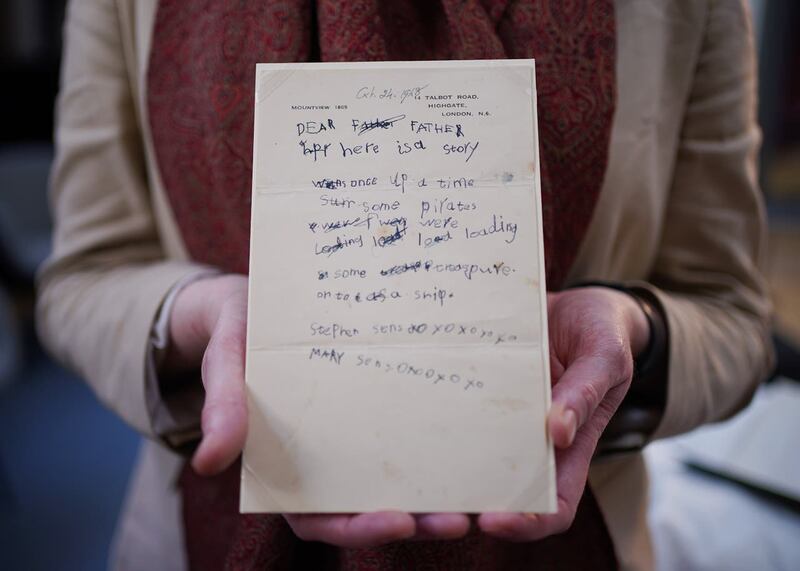 Oct. 24. 1948
MOUNTVIEW 1805
14 TALBOT ROAD,
HIGHGATE,
LONDON, N.6.
DEAR Father FATHER
here is a story
once up a time
some pilates
were
loading loading
some
on to a snip.
Stephen sens oxoxoxoxo
MARY sens oxooxoxo